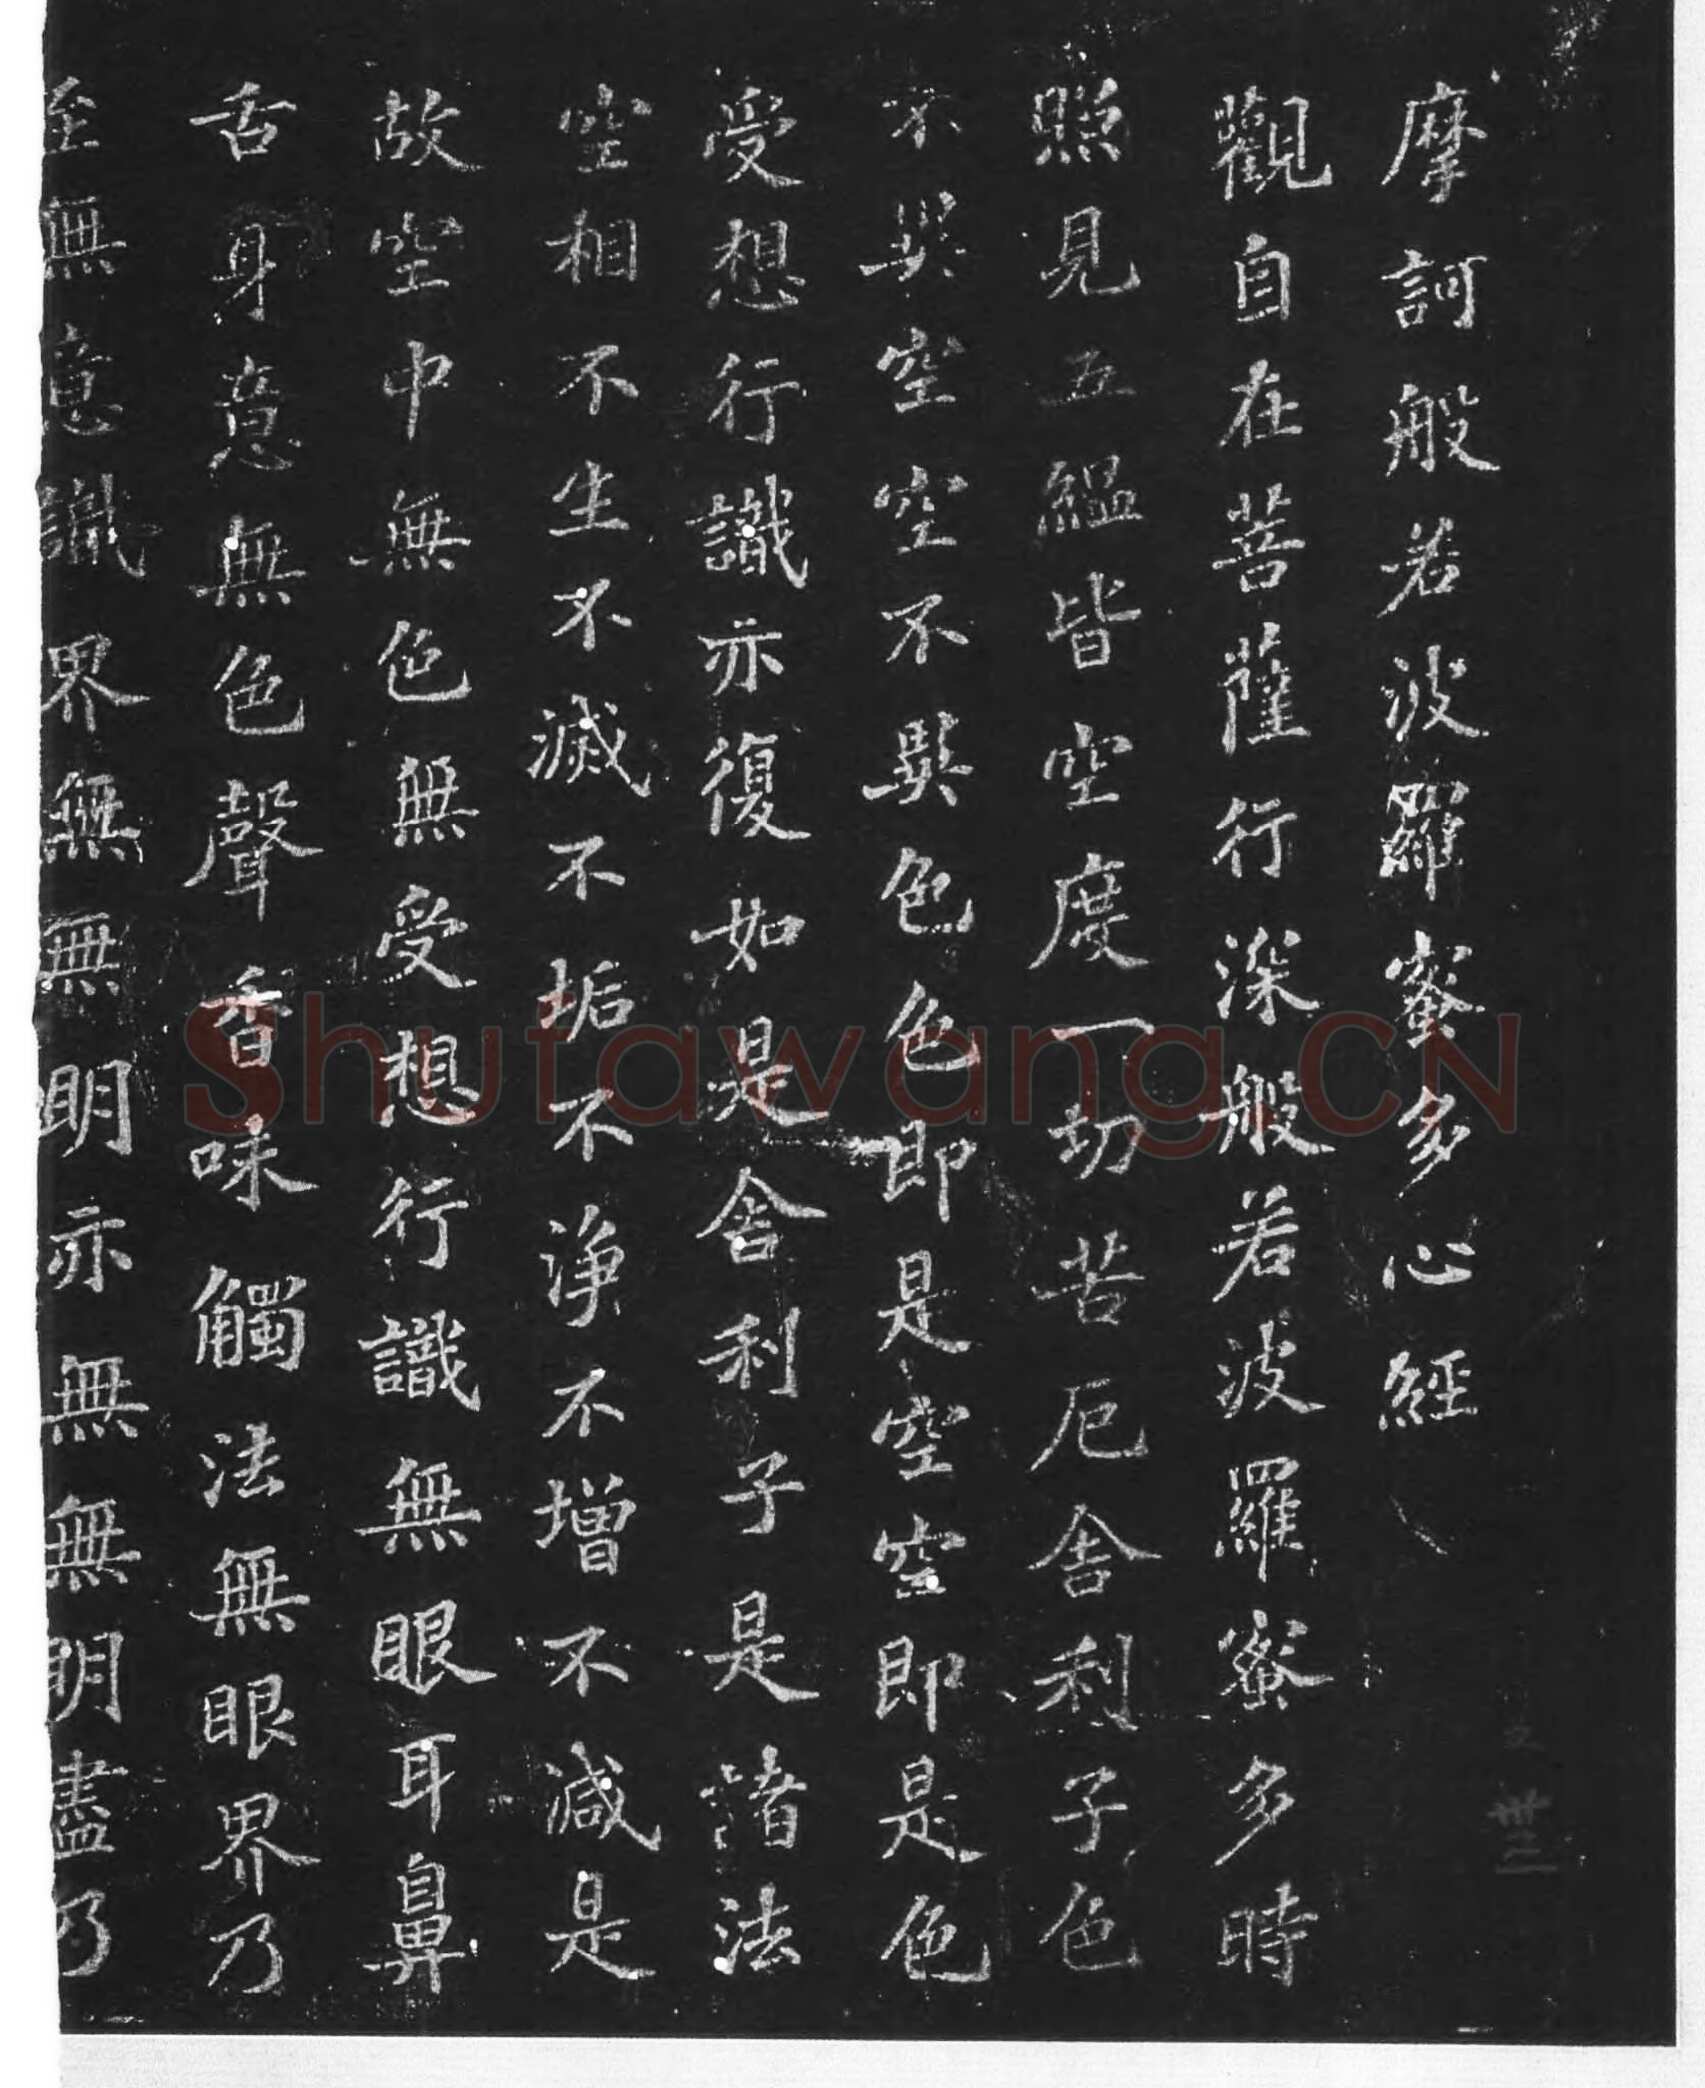 摩訶般若波羅蜜多心經
觀自在菩薩行深般若波羅蜜多時
照見五緼皆空度一切苦厄舍利子色
不異空空不異色色即是空空即是色
受想行識亦復如是舍利子是諸法
空相不生不滅不垢不淨不增不減是
故空中無色無受想行識無眼耳鼻
舌身意無色聲香味觸法無眼界乃
至無意識界無無明亦無無明盡乃
Shufawang.CN